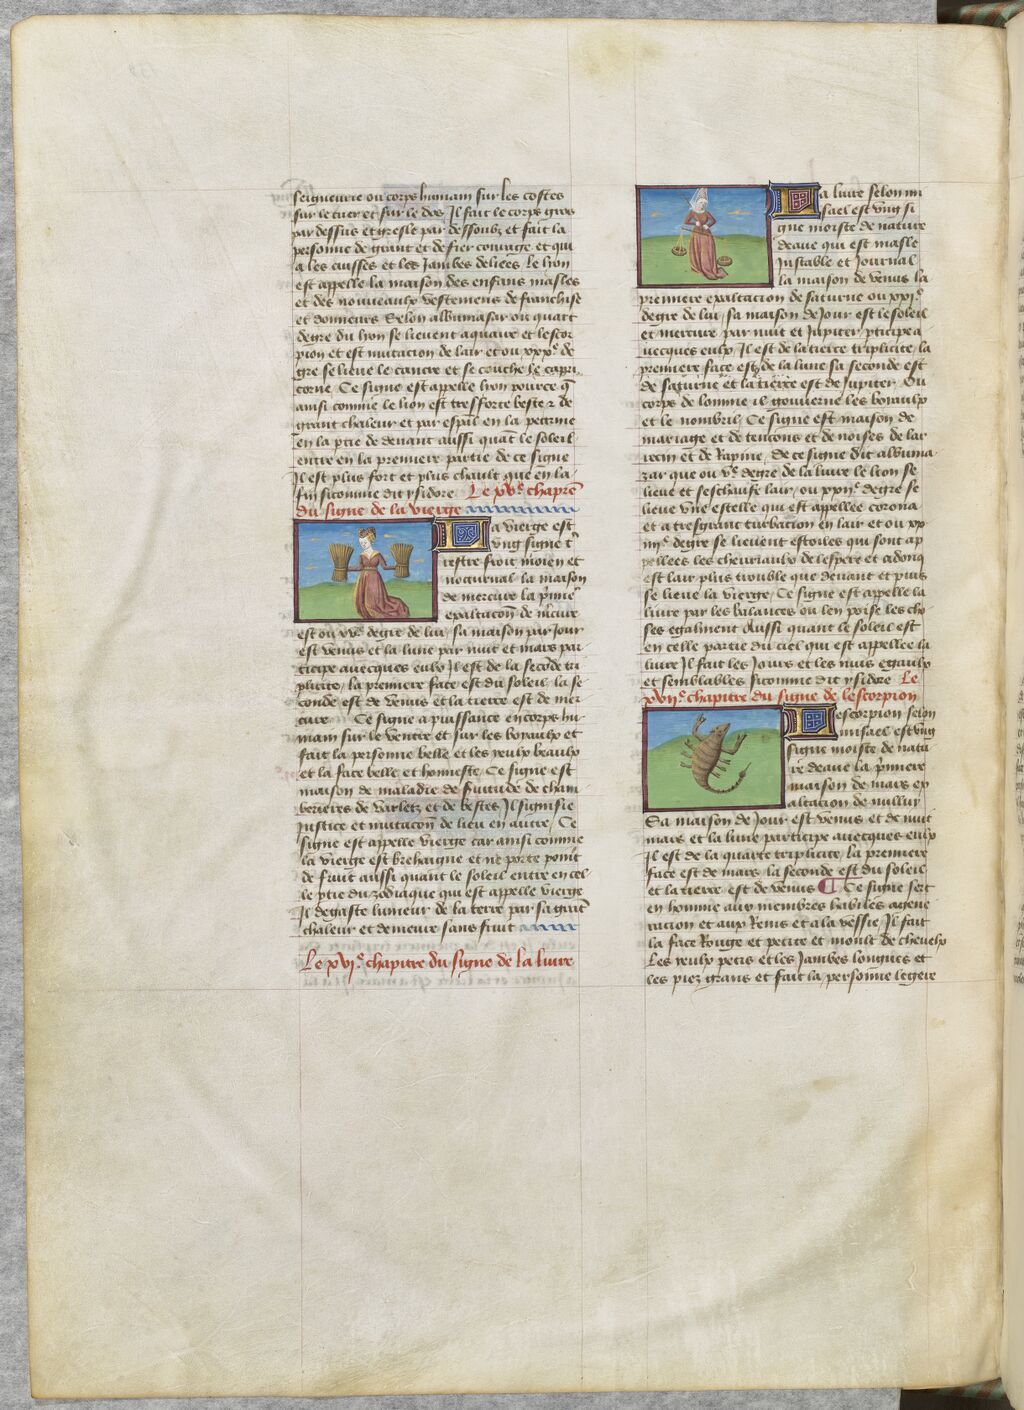 seigneurie ou corps humain sur les costes
sur le cuer et sur le dos Il fait le corps gros
par dessus et gresle par dessoubz et fait la
personne de grant et de fier courage et qui
a les cuisses et les Jambes deliees Le lyon
est appelle la maison des enfans masles
et des nouueaulx vestemens de franchise
et donneurs Selon albumasar ou quart
degre du lyon se lieuent aquaire et lescor
pion et est mutacion de lair et ou xxxe. de
gre se lieue le cancre et se couche le capri
corne Ce signe est appelle lyon pource q̄
ainsi comme le lion est tresforte beste ⁊ de
grant chaleur et par espāl en la poctrine
en la ptie de deuant aussi quāt le soleil
entre en la premiere partie de ce signe
Il est plus fort et plus chault que en la
fin sicomme dit ysidore Le xve. chaprē
du signe de la vierge
La vierge est
vng signe tr̄
restre froit moien et
nocturnal la maison
de mercure la p̄mie
exaltacoñ de m̄cure
est ou xve. degre de lui / sa maison par Jour
est venus et la lune par nuit et mars par
ticipe auecques eulx Il est de la secōde tri
plicite / la premiere face est du soleil la se
conde est de venus et la tierce est de mer
cure Ce signe a puissance en corps hu
main sur le ventre et sur les boyaulx et
fait la personne belle et les yeulx beaulx
et la face belle et honneste Ce signe est
maison de maladie de suitude de cham
berieres de varletz et de bestes Il signifie
Justice et mutacoñ de lieu en autre / Ce
signe est appelle vierge car ainsi comme
la vierge est brehaigne et ne porte point
de fruit aussi quant le soleil entre en cel
le ptie du zodiaque qui est appelle vierge
Il degaste lumeur de la terre par sa grāt
chaleur et demeure sans fruit
Le xvie. chapitre du signe de la liure
La liure selon mi
sael est vng si
gne moiste de nature
deaue qui est masle
Instable et Journal
la maison de venus la
premiere exaltacion de saturne ou xxie.
degre de lui / sa maison de Jour est le soleil
et mercure par nuit et Jupiter pticipe a
uecques eulx Il est de la tierce triplicite / la
premiere face est de la lune sa seconde est
de saturne et la tierce est de Jupiter Ou
corps de lomme il gouuerne les boyaulx
et le nombril / Ce signe est maison de
mariage et de tencons et de noises de lar
recin et de Rapine / De ce signe dit albuma
zar que ou ve. degre de la liure le lion se
lieue et seschaufe lair / ou xxiie. degre se
lieue vne estelle qui est appellee corona
et a tresgrant turbacion en lair et ou xx
iiije. degre se lieuent estoiles qui sont ap
pellees les cheuriaulx de lespere et adonq̄
est lair plus trouble que deuant et puis
se lieue la vierge / Ce signe est appelle la
liure par les balances ou len poise les cho
ses egalment Aussi quant le soleil est
en celle partie du ciel qui est appellee la
liure Il fait les Jours et les nuis egaulx
et semblables sicomme dit ysidore Le
xviie. chapitre du signe de lescorpion
Lescorpion selon
misael est vng
signe moiste de natu
re deaue la p̄miere
maison de mars ex
altacion de nulluy
Sa maison de Jour est venus et de nuit
mars et la lune participe auecques eulx
Il est de la quarte triplicite / la premiere
face est de mars la seconde est du soleil
et la tierce est de venus ¶ Ce signe sert
en homme aux membres habiles a gene
racion et aux Reins et a la vessie / Il fait
la face Rouge et petite et moult de cheueulx
Les yeulx petis et les Jambes longues et
les piez grans et fait la personne legiere